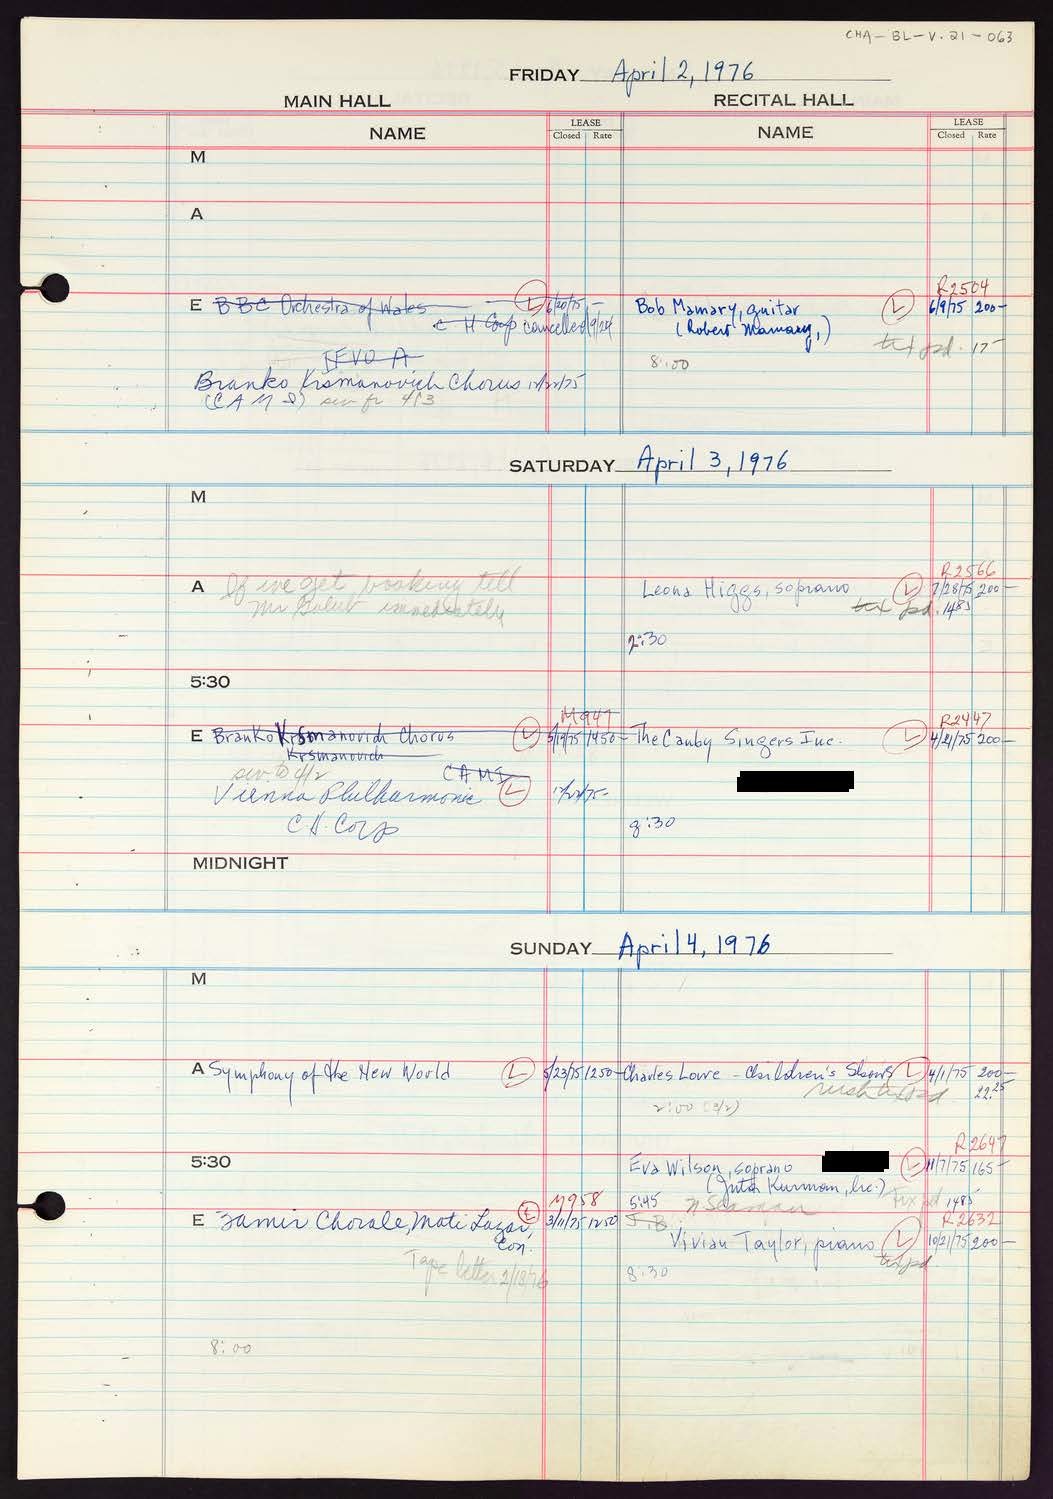 CHA-BL-V.21-063
FRIDAY April 2, 1976
MAIN HALL RECITAL HALL
NAME LEASE NAME LEASE
Closed Rate Closed Rate
M
A
R2504
E BBC Orchestra of Wales L 6/20/75 - Bob Mamary, guitar L 6/9/75 200-
C H Corp cancelled 9/24 (Robert Mamary,)
tix pd. 17-
8:00
Branko Krsmanovich Chorus 12/22/75
(CAMI) see fr 4/3
SATURDAY April 3, 1976
M
R2566
A If we get booking tell Leona Higgs, soprano L 7/28/75 200-
Mr Golub immediately tix pd. 1485
2:30
5:30
M947 R2447
E Branko Krsmanovich Chorus L 5/19/75 1450- The Canby Singers Inc. L 4/21/75 200-
Krsmanovich
see to 4/2 CAMI
Vienna Philharmonic L 12/22/75-
C.H. Corp 8:30
MIDNIGHT
SUNDAY April 4, 1976
M
A Symphony of the New World L 5/23/75 1250- Charles Lowe - Children's Shows L 4/1/75 200-
22.25
2:00
R2647
5:30 Eva Wilson, soprano L 11/7/75 165-
(Jutta Kurman, Inc.) Tix pd 1485
M958 5:45 R2632
E Zamir Chorale, Mati Lazar, L 3/11/75 1250 J.B.
Con. Vivian Taylor, piano L 10/21/75 200-
tix pd.
Tape letter 2/18/76 8:30
8:00